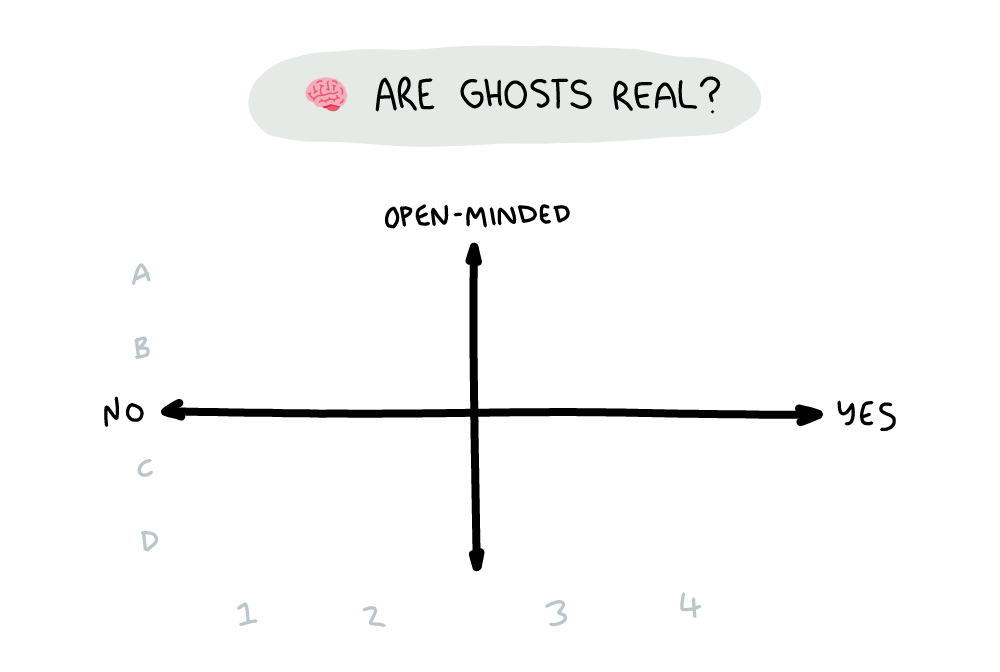 ARE GHOSTS REAL?
OPEN-MINDED
A
B
NO
YES
C
D
1 2 3 4